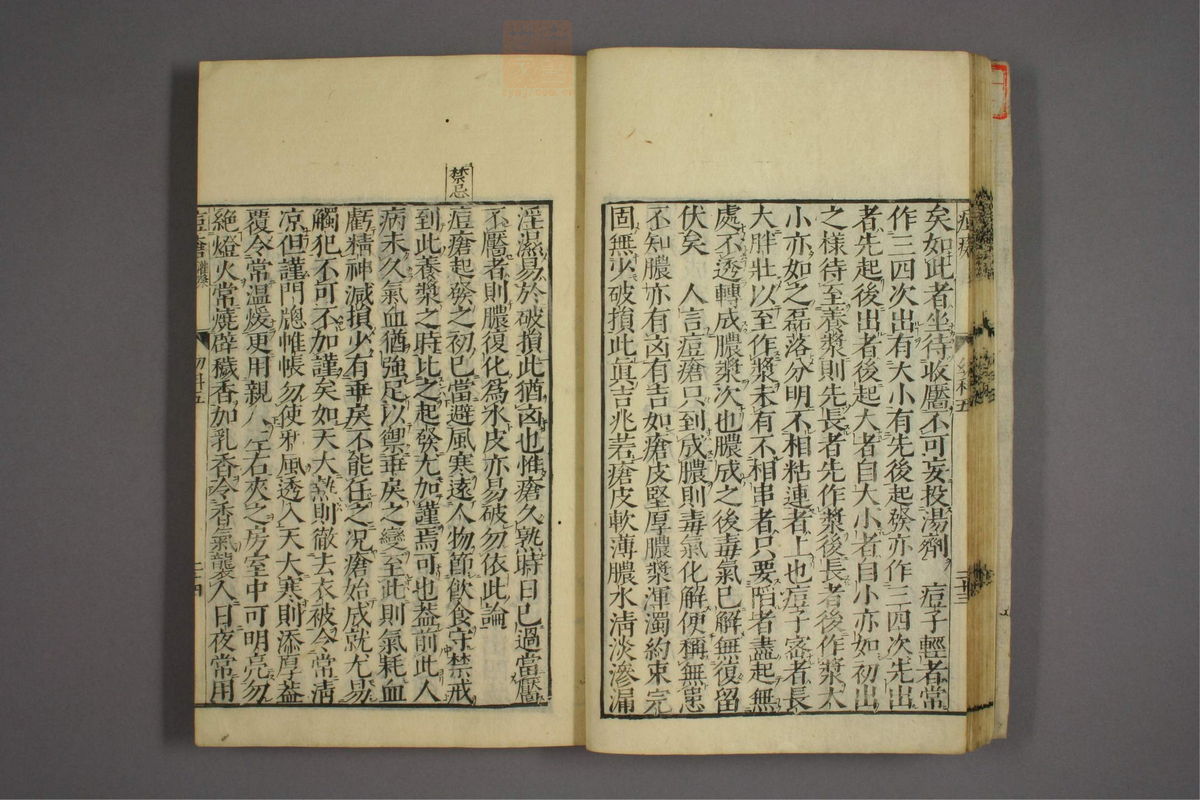 痘瘡
幼科五
二十三
矣如此者坐待收靨不可妄投湯劑　痘子輕者常
作三四次出有大小有先後起發亦作三四次先出
者先起後出者後起大者自大小者自小亦如初出
之樣待至養漿則先長者先作漿後長者後作漿大
小亦如之磊落分明不相粘連者上也痘子密者長
大胖壯以至作漿未有不相串者只要陷者盡起無
處不透轉成膿漿次也膿成之後毒氣已解無復留
伏矣　人言痘瘡只到成膿則毒氣化解便稱無恙
不知膿亦有凶有吉如瘡皮堅厚膿漿渾濁約束完
固無少破損此真吉兆若瘡皮軟薄膿水清淡滲漏
淫濕易於破損此猶凶也惟瘡久熟時日已過當靨
不靨者則膿復化為水皮亦易破勿依此論
禁忌
痘瘡起發之初已當避風寒遠人物節飲食守禁戒
到此養漿之時比之起發尤加謹焉可也蓋前此人
病未久氣血猶強足以禦垂戾之變至此則氣耗血
虧精神減損少有垂戾不能任之况瘡始成就尤易
觸犯不可不加謹矣如天大熱則徹去衣被令常清
凉但謹門牕帷帳勿使邪風透入天大寒則添厚益
覆令常温煖更用親人左右夾之房室中可明亮勿
絶燈火常燒辟穢香加乳香令香氣襲人日夜常用
痘瘡
幼科五
二十四